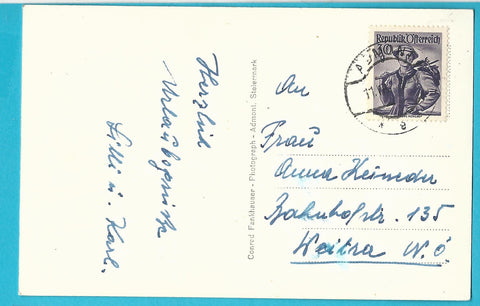 Herzliche
Urlaubsgrüße
Lilli u. Karl.
Conrad Fankhauser - Photograph - Admont, Steiermark
Republik Österreich
An
Frau
Anna Heimdan
Bahnhofstr. 135
Weitra N.Ö